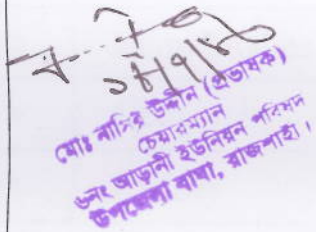 মোঃ নাসির উদ্দীন (প্রভাষক)
চেয়ারম্যান
৬নং আড়ানী ইউনিয়ন পরিষদ
উপজেলা বাঘা, রাজশাহী।